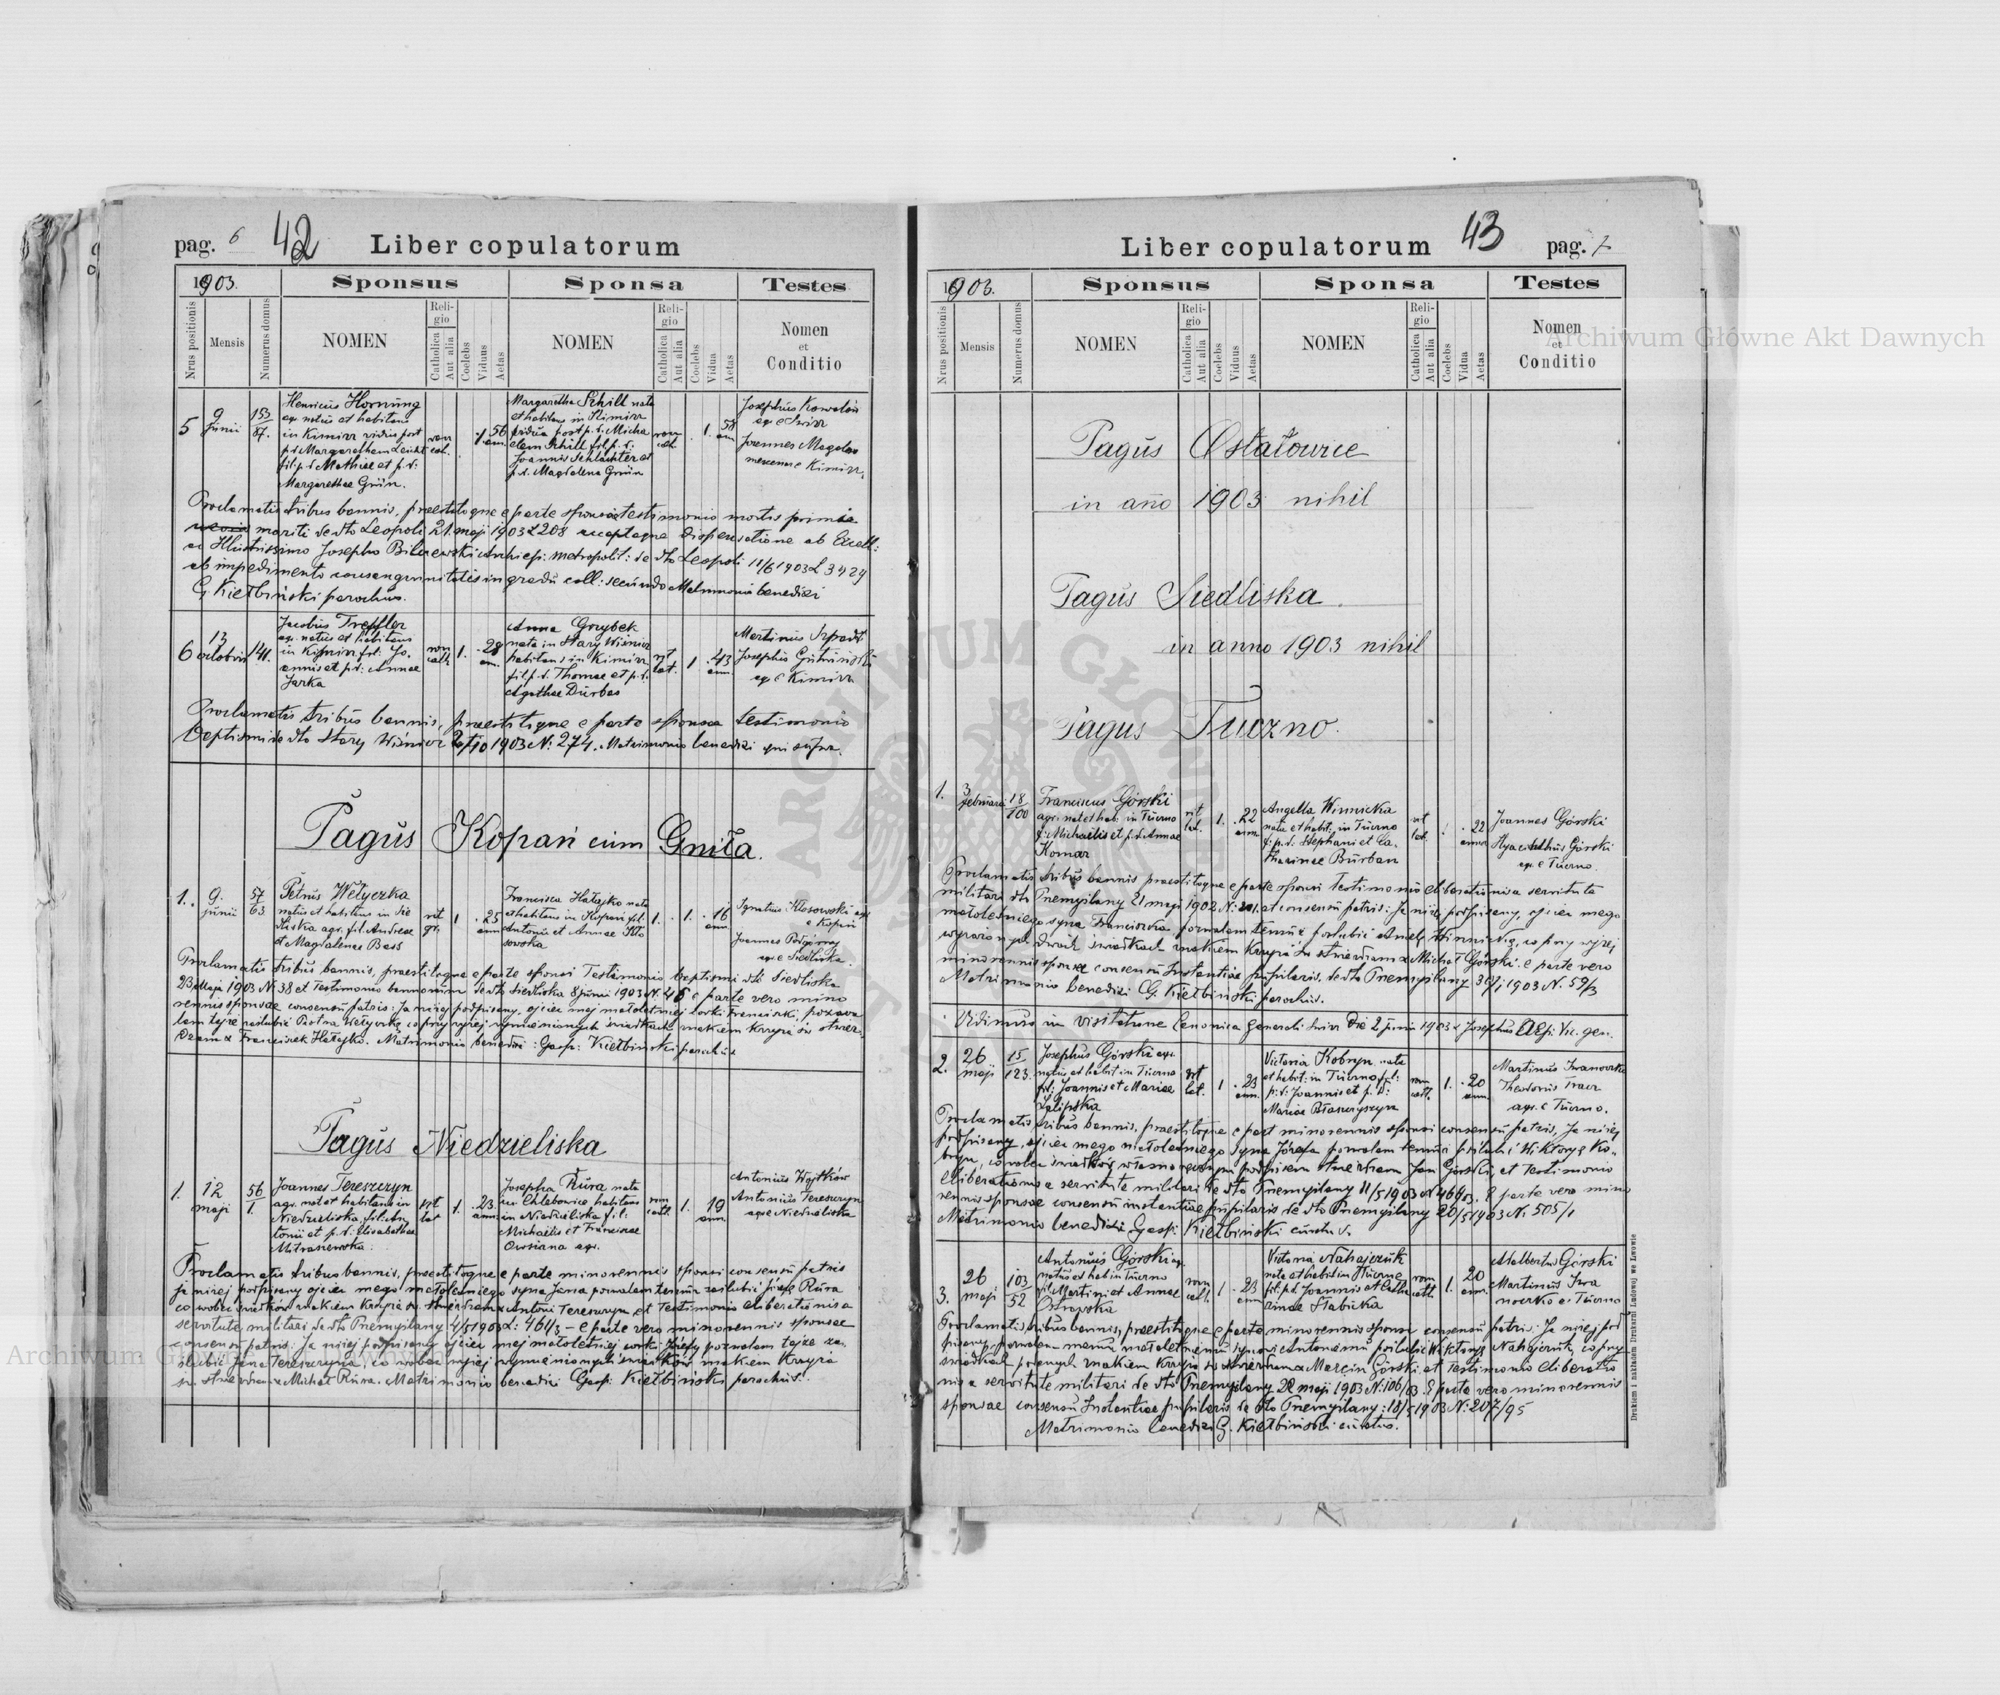 pag. 6 42 Liber copulatorum
1903. Sponsus Sponsa Testes
Nrus positionis Mensis Numerus domus NOMEN Religio Catholica Aut alia Coelebs Viduus Aetas NOMEN Religio Catholica Aut alia Coelebs Vidua Aetas Nomen et Conditio
5 9 Junii 153 87.
Henricus Hornung
agr. natus et habitans
in Kimirz viduus post
p. d. Margaretham Leicht
fil. p. d. Mathiae et p. d:
Margarethae Grün.
rom cath. 1 56 ann.
Margaretha Schill nata
et habitans in Kimirz
vidua post p. d. Micha
elem Schill fil. p. d:
Joannis Schlachter et
p. d. Magdalena Grün
rom cath. 1. 58 ann
Josephus Kowalów
agr. e Swirz
Joannes Magolas
e Kimirz.
Proclamatis tribus bannis, praestitoque e parte sponsae testimonio mortis primi
mariti de dto Leopoli 21. maji 1903 L 208 acceptaque dispensatione ab Excell:
ac Illustrissimo Josepho Bilczewski Archiepi: metropolit: de dto Leopoli 11/6 1903 L 3429
ab impedimento consanguinitatis in gradu coll: secundo Matrimonio benedixi
G. Kiełbiński parochus.
6 13 octobris 141.
Jacobus Treffler
agr. natus et habitans
in Kimirz fil: Jo.
annis et p. d: Annae
Jarka
rom cath 1. 28 ann.
Anna Grzybek
nata in Stary Wiśnicz
habitans in Kimirz
fil. p. d. Thomae et p. d.
Agathae Durbas
rit lat. 1 43 ann.
Martinus Szpadt
Josephus Gutwiński
agr. e Kimirz
Proclamatis tribus bannis, praestitoque e parte sponsae testimonio
baptismi de dto Stary Wiśnicz 1903 N: 274. Matrimonio benedixi qui supra.
Pagus Kopań cum Gniła.
1. 9. junii 57 63
Petrus Wełyczka
natus et habitans in Sie
dliska agr. fil. Andreae
et Magdalenae Bass
rit gr. 1 25 ann
Francisca Hałajko nata
et habitans in Kopań fil.
Antonii et Annae Kło
sowska
1. 1. 16 ann.
Ignatius Kłosowski agr
e Kopań
Joannes Podgórny
agr. e Siedliska.
Proclamatis tribus bannis, praestitoque e parte sponsi Testimonio baptismi dto Siedliska
23/Maji 1903 N. 38 et Testimonio bannorum de dto Siedliska 8 junii 1903 N. 46 e parte vero mino
rennis sponsae consensu patris: Ja niżej podpisany, ojciec mej małoletniej córki Franciszki, pozwa
lam tejże zaślubić Piotra Wełyczkę co przy wyżej wymienionych świadkach znakiem krzyża św. stwier.
dzam x Franciszek Hałajko. Matrimonio benedixi: Gasp: Kiełbiński parochus
Pagus Niedzieliska
1. 12 maji 56 1.
Joannes Tereszczyn
agr. nat. et habitans in
Niedzieliska, fil. An
tonii et p. d: Elisabethae
Mitraszewska.
rit lat 1. 23. ann.
Josepha Rura, nata
in Chlebowice, habitans
in Niedzieliska fil:
Michaelis et Franciscae
Owsiana agr.
rom cath 1. 19 ann.
Antonius Wojtków
Antonius Tereszczyn
agr. e Niedzieliska
Proclamatis tribus bannis, praestitoque e parte minorennis sponsi consensu patris
ja niżej podpisany ojciec mego małoletniego syna Jana pozwalam temuż zaślubić Józefę Rura
co wobec świadków znakiem krzyża św. stwierdzam x Antoni Tereszczyn et Testimonio eliberationis a
servitute militari de dto Przemyślany 4/5 1903 L: 461/3 – e parte vero minorennis sponsae
consensu patris: Ja niżej podpisany ojciec mej małoletniej córki Józefy pozwalam tejże za
ślubić Jana Tereszczyna, co wobec wyżej wymienionych świadków znakiem krzyża
św. stwierdzam x Michał Rura. Matrimonio benedixi Gasp: Kiełbiński parochus.
Liber copulatorum 43 pag. 7
1903. Sponsus Sponsa Testes
Nrus positionis Mensis Numerus domus NOMEN Religio Catholica Aut alia Coelebs Viduus Aetas NOMEN Religio Catholica Aut alia Coelebs Vidua Aetas Nomen et Conditio
Pagus Ostałowice
in año 1903 nihil
Pagus Siedliska.
in anno 1903 nihil
Pagus Tuczno.
1. 3 februarii 18 100
Franciscus Górski
agr. nat. et hab: in Tuczno
f: Michaelis et p. d. Annae
Komar
rit lat. 1. 22 ann
Angella Winnicka
nata et habit. in Tuczno
f: p. d. Stephani et Ca.
tharinae Burban
rit lat. 22 annor
Joannes Górski
Hyacinthus Górski
agr. e Tuczno.
Proclamatis tribus bannis praestitoque e parte sponsi Testimonio eliberationis a servitute
militari dto Przemyślany 21 maji 1902 N: 201. et consensu patris: Ja niżej podpisany, ojciec mego
małoletniego syna Franciszka, pozwalam temuż poślubić Anielę Winnicką, co przy wyżej
dwóch świadkach znakiem krzyża św. stwierdzam x Michał Górski. e parte vero
minorennis sponsae consensu Instantiae pupilaris, de dto Przemyślany 30/1 1903 N. 59/3
Matrimonio benedixi G. Kiełbiński parochus.
Vidimus in visitatione Canonica generali Swirz Die 2 junii 1903 x Josephus AEpi: Vic. gen.
2. 26 maji 15 123.
Josephus Górski agr.
natus et habit in Tuczno
fil: Joannis et Mariae
Zalipska
rit lat. 1 23 ann.
Victoria Kobryn nata
et habit: in Tuczno fil:
p. d: Joannis et p. d:
Mariae Błaszczyszyn
rom cath. 1. 20 ann.
Martinus Iwanowska
Theodorus Tracz
agr. e Tuczno.
Proclamatis tribus bannis, praestitoque e part minorennis sponsi consensu patris, Ja niżej
podpisany, ojciec mego małoletniego syna Józefa pozwalam temuż poślubić Wiktoryę Ko„
bryn, co wobec świadków własnoręcznym podpisem stwierdzam Jan Górski, et Testimonio
eliberationis a servitute militari de dto Przemyślany 11/5 1903 N 466/03. E parte vero mino
rennis sponsae consensu instantiae pupilaris de dto Przemyślany 20/5 1903 N: 505/1
Matrimonio benedixi Gasp: Kiełbiński
3. 26 maji 103 52
Antonius Górski agr.
natus et hab in Tuczno
fil. Martini et Annae
Ostrowska
rom cath. 1 23 ann
Victoria Nahajczuk
nata et hab. in Tuczno
fil: p. d. Joannis et Catha
rinae Słabicka
rom cath 1. 20 ann.
Adalbertus Górski
Martinus Iwa
nowrko e Tuczno
Proclamatis tribus bannis, praestitoque e parte minorennis sponsi consensu patris: Ja niżej pod
pisany pozwalam memu małoletniemu synowi Antoniemu poślubić Wiktoryę Nahajczuk, co przy
świadkach znakiem krzyża św. stwierdzam x Marcin Górski et Testimonio eliberatio
nis a servitute militari de dto Przemyślany 22 maji 1903 N: 106/03. E parte vero minorennis
sponsae consensu Instantiae pupilaris de dto Przemyślany: 18/5 1903 N: 207/95
Matrimonio benedixi G. Kiełbiński
Drukiem i nakładem Drukarni Ludowej we Lwowie
Archiwum Główne Akt Dawnych
ARCHIWUM GŁÓWNE AKT